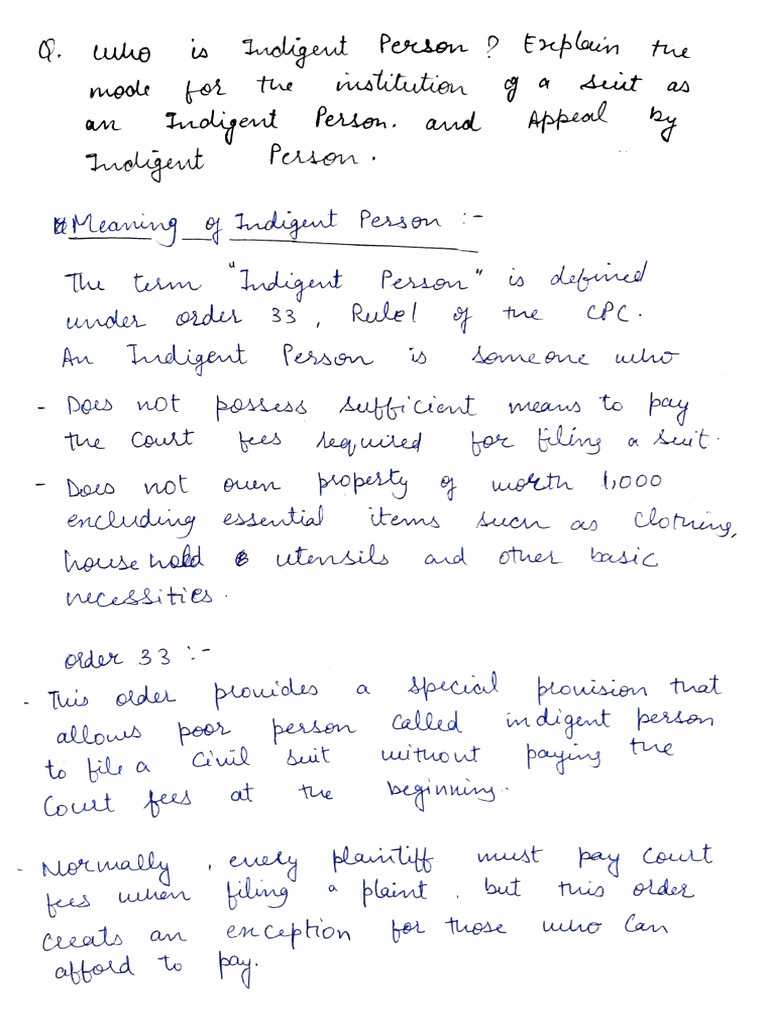 Q. Who is Indigent Person? Explain the
mode for the institution of a suit as
an Indigent Person. and Appeal by
Indigent Person.
Meaning of Indigent Person :-
The term "Indigent Person" is defined
under order 33, Rule 1 of the CPC.
An Indigent Person is someone who
- Does not possess sufficient means to pay
the court fees required for filing a suit.
- Does not own property of worth 1,000
excluding essential items such as clothing,
household utensils and other basic
necessities.
order 33 :-
- This order provides a special provision that
allows poor person called indigent person
to file a civil suit without paying the
court fees at the beginning.
- Normally, every plaintiff must pay court
fees when filing a plaint, but this order
creats an exception for those who can
afford to pay.